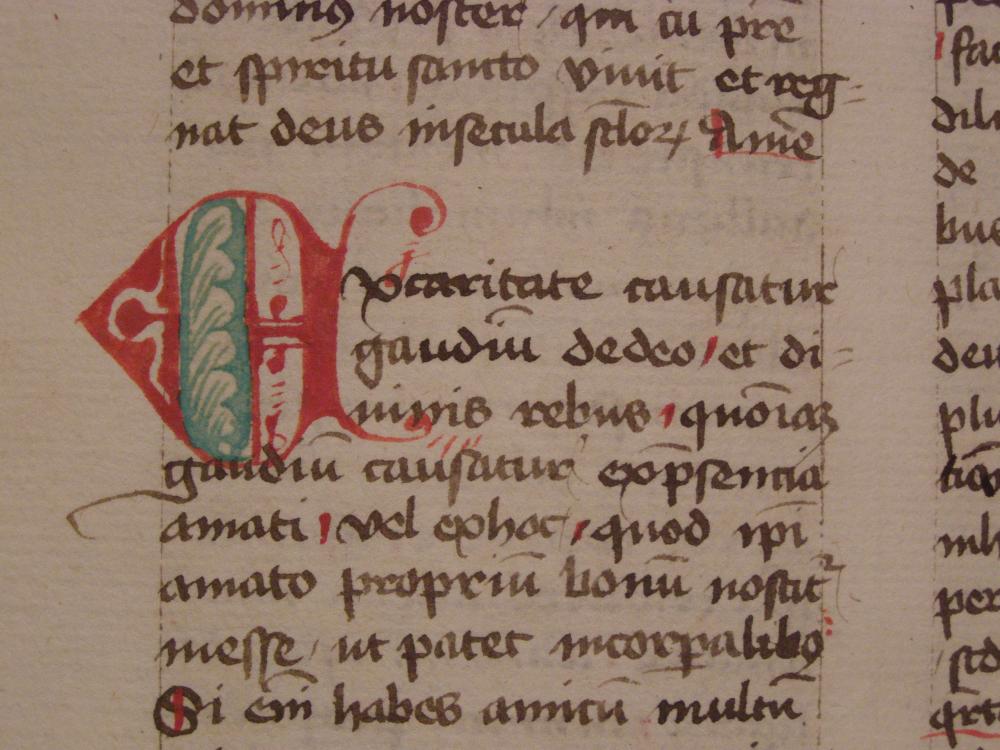 dominus noster, qui cu pre
et spiritu sancto vivit et reg=
nat deus insecula sclor Ame
Excaritate causatur
gaudiū dedeo, et di=
uinis rebus, quoīa3
gaudiū causatur exp̄sentia
amati, vel exhoc, quod ipī
amato propriū bonū
inesse, ut patet incorpalibꝯ
Si em̄ habes amicū multū
fac
dili
de
bue
pla
deu
plu
inh
per